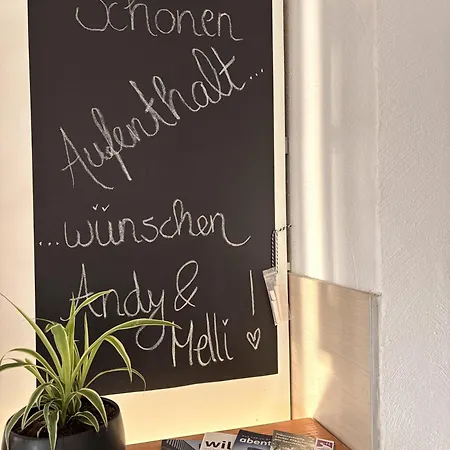 Schönen
Aufenthalt...
...wünschen
Andy &
Melli!
wil
abent